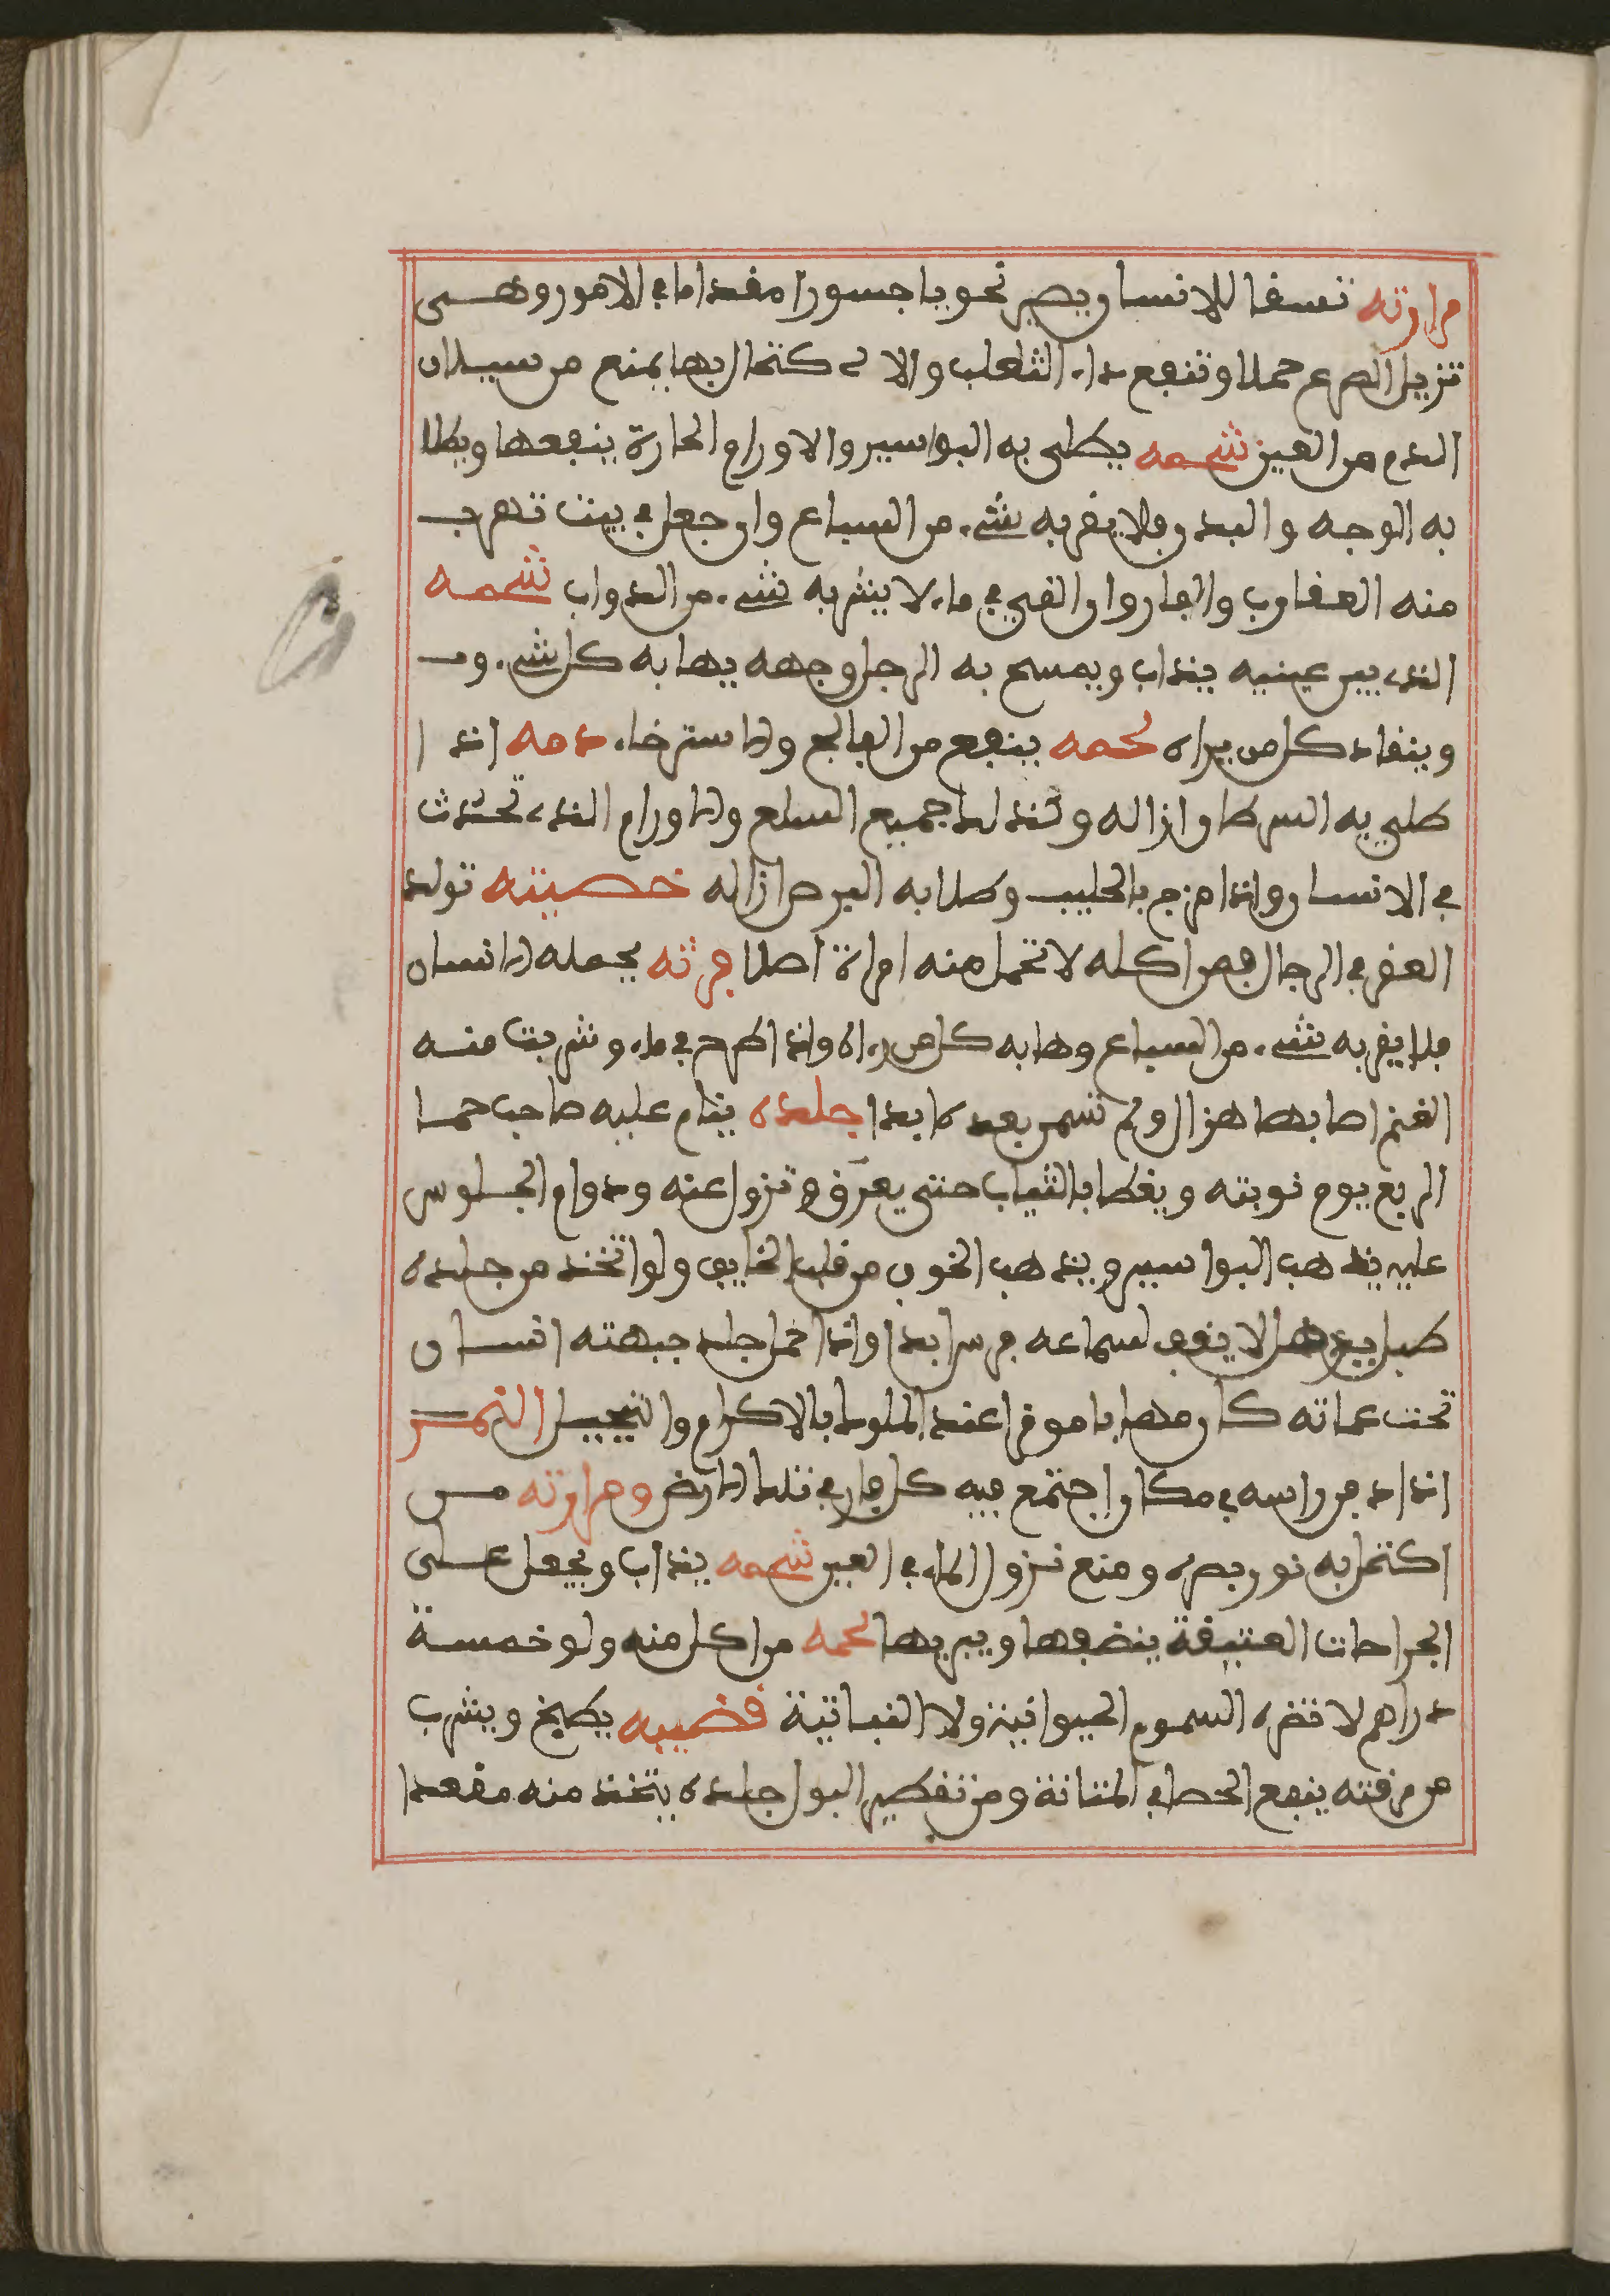 مرارته تسقا للانسان يصير نحويا جسورا مقداما في الامور وهى
تزيل الصرع حملا وتنفع داء الثعلب والا كتحال بها يمنع من سيلان
الدم من العين شحمه يطلى به البواسير والاورام الحارة ينفعها ويطلا
به الوجه والبدن فلا يقربه شيء من السباع وان جعل في بيت تهرب
منه العقارب والفار وان القي في ماء لا يشربه شيء من الدواب شحمه
الذي بين عينيه يذاب ويمسح به الرجل وجهه يهابه كل شيء و
وينقاد كل من يراه لحمه ينفع من الفالج والاسترخاء دمه اذا
طلي به السرطان ازاله وكذلك جميع السلع والاورام الذي تحدث
في الانسان واذا مزج بالحليب وطلا به البرص ازاله خصيته تولد
العقر في الرجال فمن اكله لا تحمل منه امراة اصلا فرثه يحمله الانسان
فلا يقربه شيء من السباع وهابه كل من راه واذا طرح في ماء وشربت منه
الغنم اصابها هزال ولم تسمن بعده ابدا جلده ينام عليه صاحب حما
الربع يوم نوبته ويغطا بالثياب حتى يعرق وتزول عنه ودوام الجلوس
عليه يذهب البواسير ويذهب الخوف من قلب الخايف ولو اتخذ من جلده
طبل لا يقف لسماعه فرس ابدا واذا حمل جلد جبهته انسان
تحت عمامته كان مهابا موقرا عند الملوك بالاكرام والتبجيل النمر
اذا دفن راسه في مكان اجتمع فيه كل فار في تلك الارض ومرارته من
اكتحل به نور بصره ومنع نزول الماء في العين شحمه يذاب ويجعل على
الجراحات العتيقة ينضفها ويبريها لحمه من اكل منه ولو خمسة
دراهم لا تضره السموم الحيوانية ولا النباتية قضيبه يطبخ ويشرب
من مرقته ينفع الحصا في المثانة ومن تقطير البول جلده يتخذ منه مقعدا